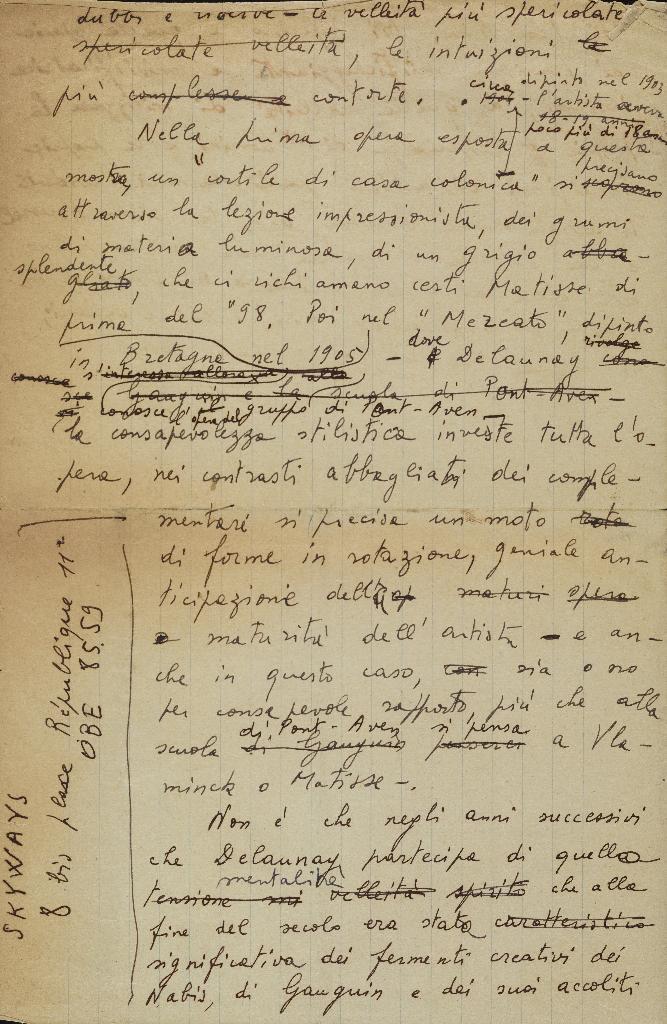 dubbi e riserve - le velleità più spericolate
spericolate velleità, le intuizioni le
più complesse e contorte.
circa dipinto nel 1903
1904 - l'artista aveva
18-19 anni
poco più di 18 anni
Nella prima opera esposta a questa
precisano
mostra, un "cortile di casa colonica" si
attraverso la lezione impressionista, dei grumi
di materia luminosa, di un grigio abba-
splendente
gliato, che ci richiamano certi Matisse di
prima del "98. Poi nel "Mercato", dipinto
in Bretagna nel 1905) - dove Delaunay rivolge
conosce s'interessa allora alla
Gauguin e la scuola di Pont-Aven-
si conosce l'opera del gruppo di Pont-Aven
la consapevolezza stilistica investe tutta l'o-
pera, nei contrasti abbagliati dei comple-
mentari si precisa un moto
di forme in rotazione, geniale an-
ticipazione della maturi opera
maturità dell'artista - e an-
che in questo caso, con sia o no
per consapevole rapporto, più che alla
di Pont-Aven si pensa
scuola di Gauguin a Vla-
minck o Matisse -.
Non è che negli anni successivi
che Delaunay partecipa di quella
mentalità
tensione velleità spirito che alla
fine del secolo era stata caratteristica
significativa dei fermenti creativi dei
Nabis, di Gauguin e dei suoi accoliti
SKYWAYS
8 bis place République 11e
OBE 85.59